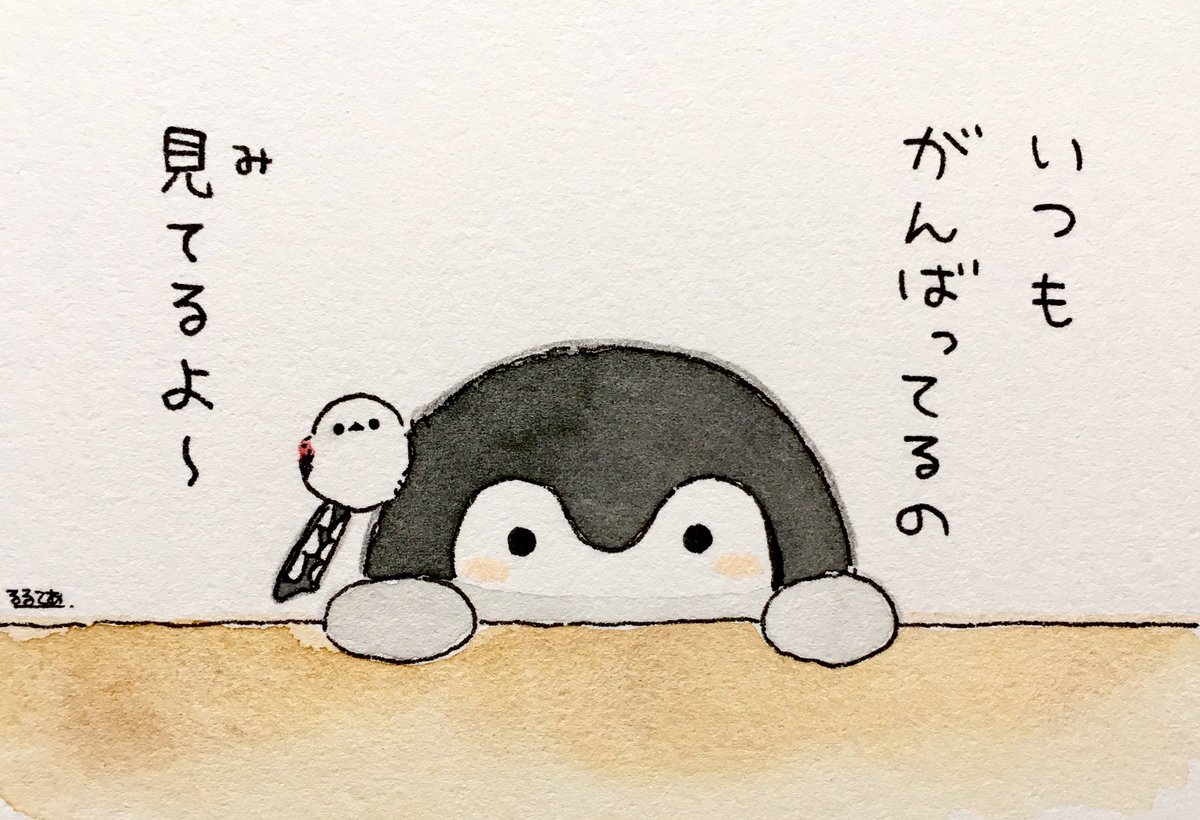 いつも
がんばってるの
見てるよ〜
み
るるてあ.